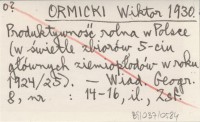 o?
ORMICKI Wiktor 1930.
Produktywność rolna w Polsce
(w świetle zbiorów 5-ciu
głównych ziemiopłodów w roku
1924/25). — Wiad. Geogr.
8, nr : 14-16, il.,